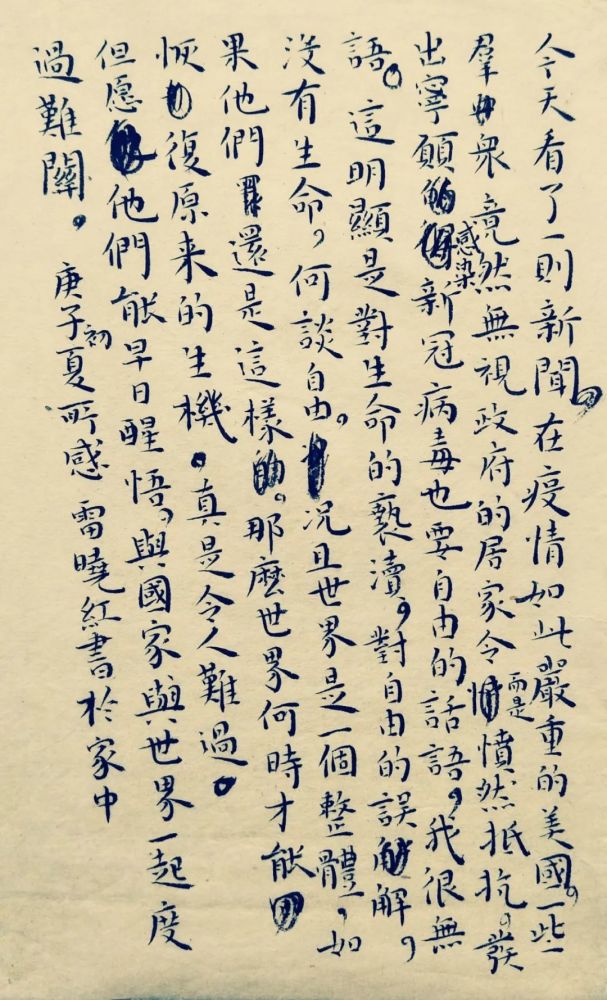 今天看了一則新聞。在疫情如此嚴重的美國，一些
羣衆竟然無視政府的居家令而是憤然抵抗。發
出寧願感染新冠病毒也要自由的話語，我很無
語。這明顯是對生命的褻瀆，對自由的誤解，
沒有生命，何談自由。况且世界是一個整體，如
果他們還是這樣。那麽世界何時才能
恢復原来的生機。真是令人難過。
但愿他們能早日醒悟，與國家與世界一起度
過難關。
庚子夏初所感 雷曉紅書於家中